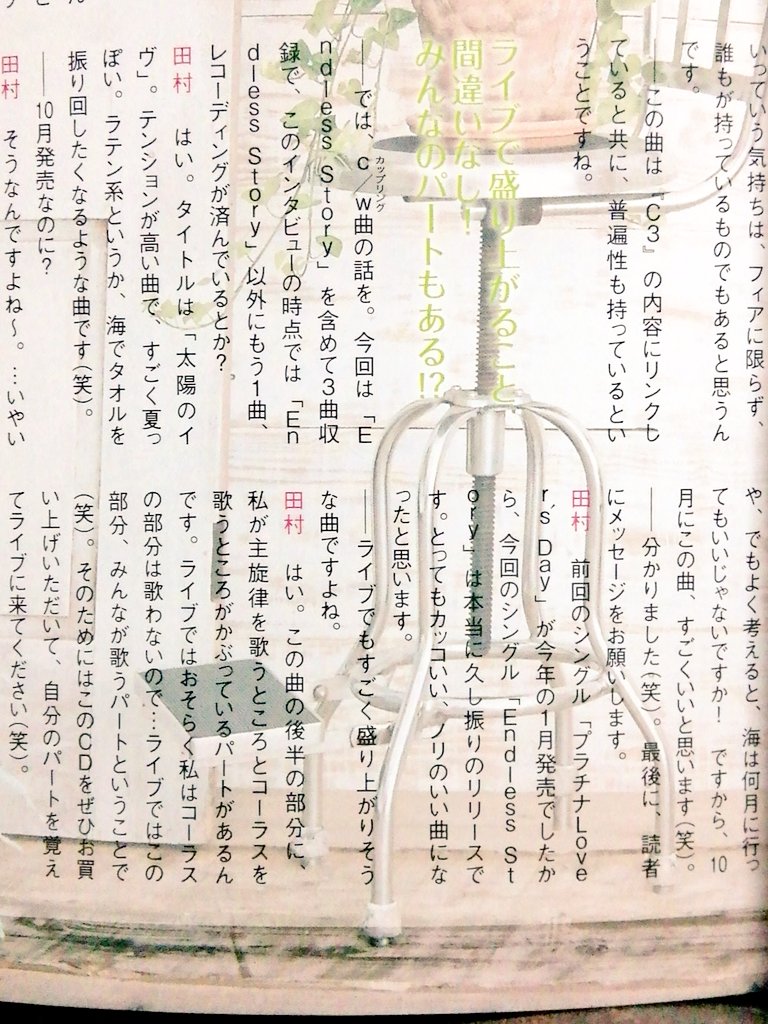 いっていう気持ちは、フィアに限らず、
誰もが持っているものでもあると思うん
です。
――この曲は『C3』の内容にリンクし
ていると共に、普遍性も持っているとい
うことですね。
ライブで盛り上がること
間違いなし！
みんなのパートもある!?
――では、c/w曲の話を。今回は「E
カップリング
ndless Story」を含めて3曲収
録で、このインタビューの時点では「En
dless Story」以外にもう1曲、
レコーディングが済んでいるとか？
田村　はい。タイトルは「太陽のイ
ヴ」。テンションが高い曲で、すごく夏っ
ぽい。ラテン系というか、海でタオルを
振り回したくなるような曲です（笑）。
――10月発売なのに？
田村　そうなんですよね～。…いやい
や、でもよく考えると、海は何月に行っ
てもいいじゃないですか！　ですから、10
月にこの曲、すごくいいと思います（笑）。
――分かりました（笑）。最後に、読者
にメッセージをお願いします。
田村　前回のシングル「プラチナLove
r's Day」が今年の1月発売でしたか
ら、今回のシングル「Endless St
ory」は本当に久し振りのリリースで
す。とってもカッコいい、ノリのいい曲にな
ったと思います。
――ライブでもすごく盛り上がりそう
な曲ですよね。
田村　はい。この曲の後半の部分に、
私が主旋律を歌うところとコーラスを
歌うところがかぶっているパートがあるん
です。ライブではおそらく私はコーラス
の部分は歌わないので…ライブではこの
部分、みんなが歌うパートということで
（笑）。そのためにはこのCDをぜひお買
い上げいただいて、自分のパートを覚え
てライブに来てください（笑）。